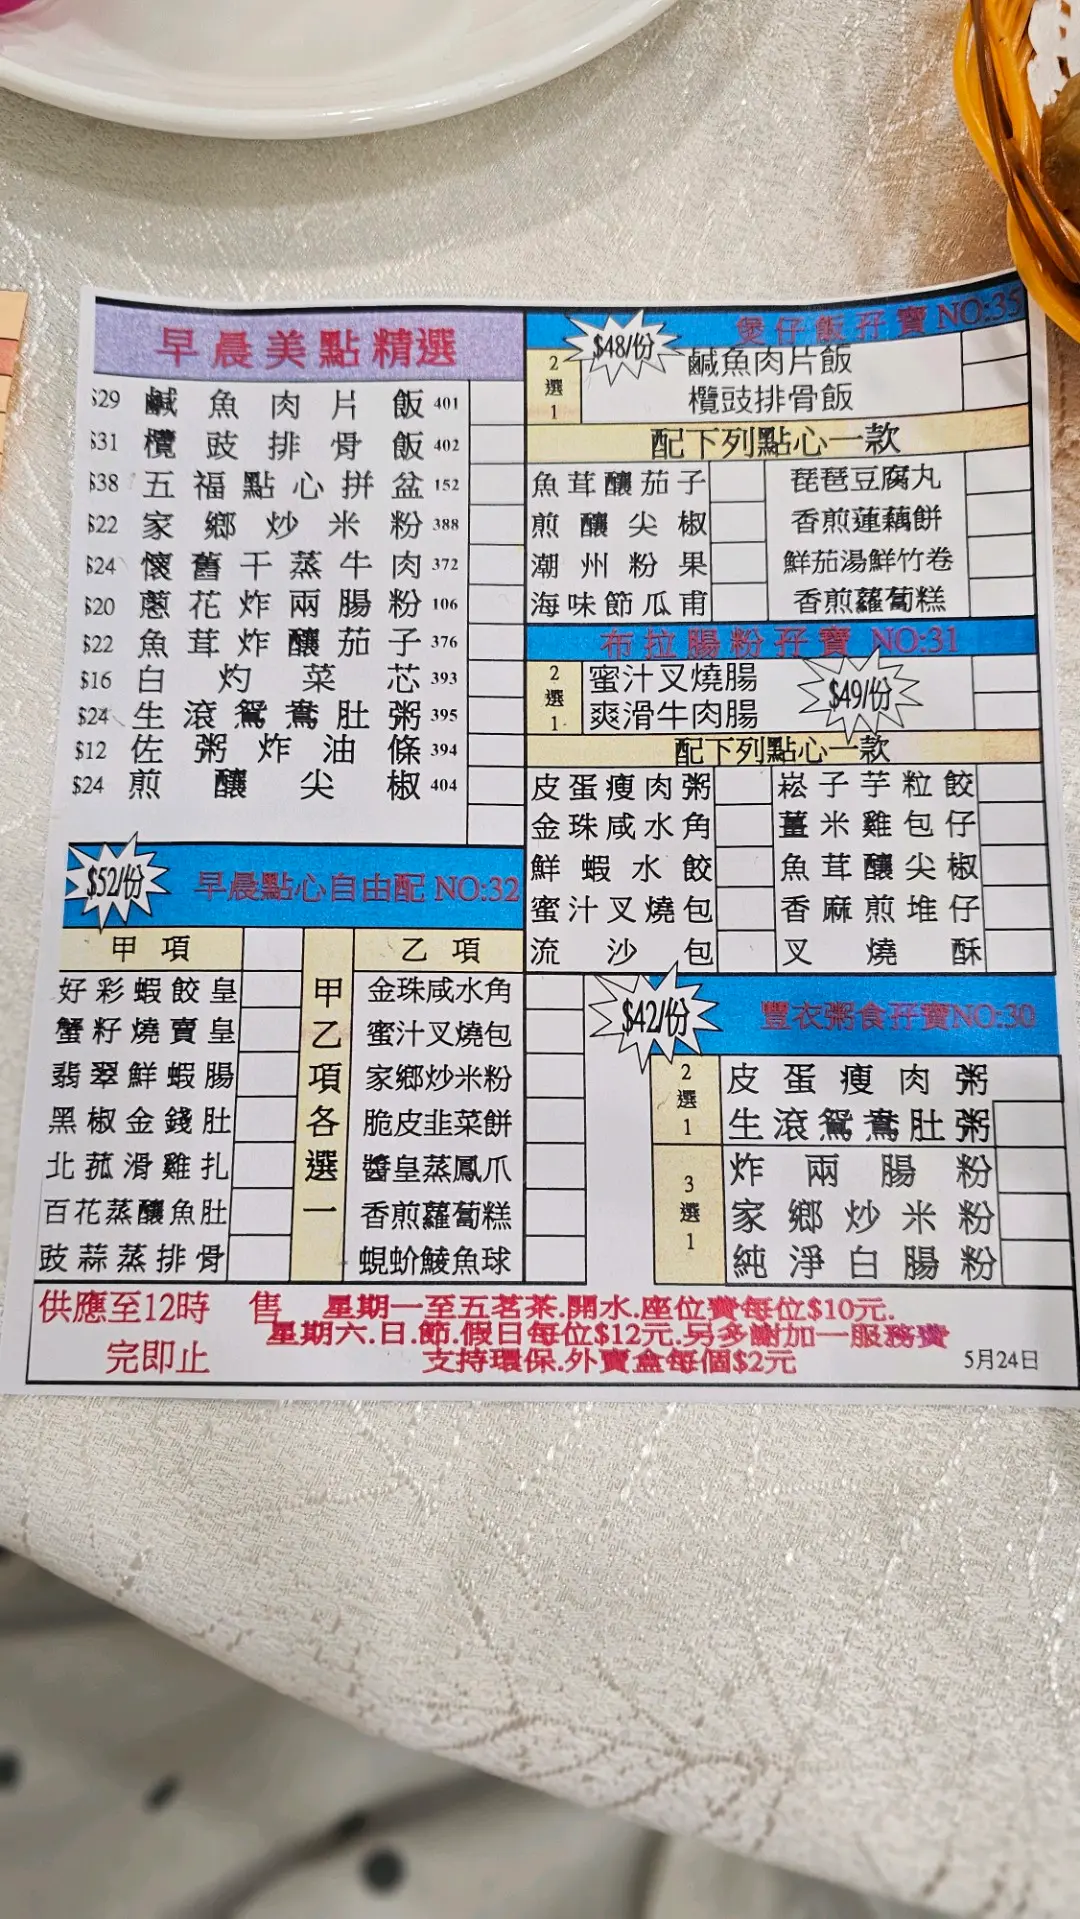 早晨美點精選
$29 鹹魚肉片飯 401
$31 欖豉排骨飯 402
$38 五福點心拼盆 152
$22 家鄉炒米粉 388
$24 懷舊干蒸牛肉 372
$20 蔥花炸兩腸粉 106
$22 魚茸炸釀茄子 376
$16 白灼菜芯 393
$24 生滾鴛鴦肚粥 395
$12 佐粥炸油條 394
$24 煎釀尖椒 404
$52/份 早晨點心自由配 NO:32
甲項
好彩蝦餃皇
蟹籽燒賣皇
翡翠鮮蝦腸
黑椒金錢肚
北菰滑雞扎
百花蒸釀魚肚
豉蒜蒸排骨
甲乙項各選一
乙項
金珠咸水角
蜜汁叉燒包
家鄉炒米粉
脆皮韭菜餅
醬皇蒸鳳爪
香煎蘿蔔糕
蜆蚧鯪魚球
$48/份 煲仔飯孖寶 NO:35
2選1
鹹魚肉片飯
欖豉排骨飯
配下列點心一款
魚茸釀茄子 琵琶豆腐丸
煎釀尖椒 香煎蓮藕餅
潮州粉果 鮮茄湯鮮竹卷
海味節瓜甫 香煎蘿蔔糕
布拉腸粉孖寶 NO:31
2選1
蜜汁叉燒腸
爽滑牛肉腸
$49/份
配下列點心一款
皮蛋瘦肉粥 崧子芋粒餃
金珠咸水角 薑米雞包仔
鮮蝦水餃 魚茸釀尖椒
蜜汁叉燒包 香麻煎堆仔
流沙包 叉燒酥
$42/份 豐衣粥食孖寶NO:30
2選1
皮蛋瘦肉粥
生滾鴛鴦肚粥
3選1
炸兩腸粉
家鄉炒米粉
純淨白腸粉
供應至12時 售
完即止
星期一至五茗茶.開水.座位費每位$10元.
星期六.日.節.假日每位$12元.另多謝加一服務費
支持環保.外賣盒每個$2元
5月24日